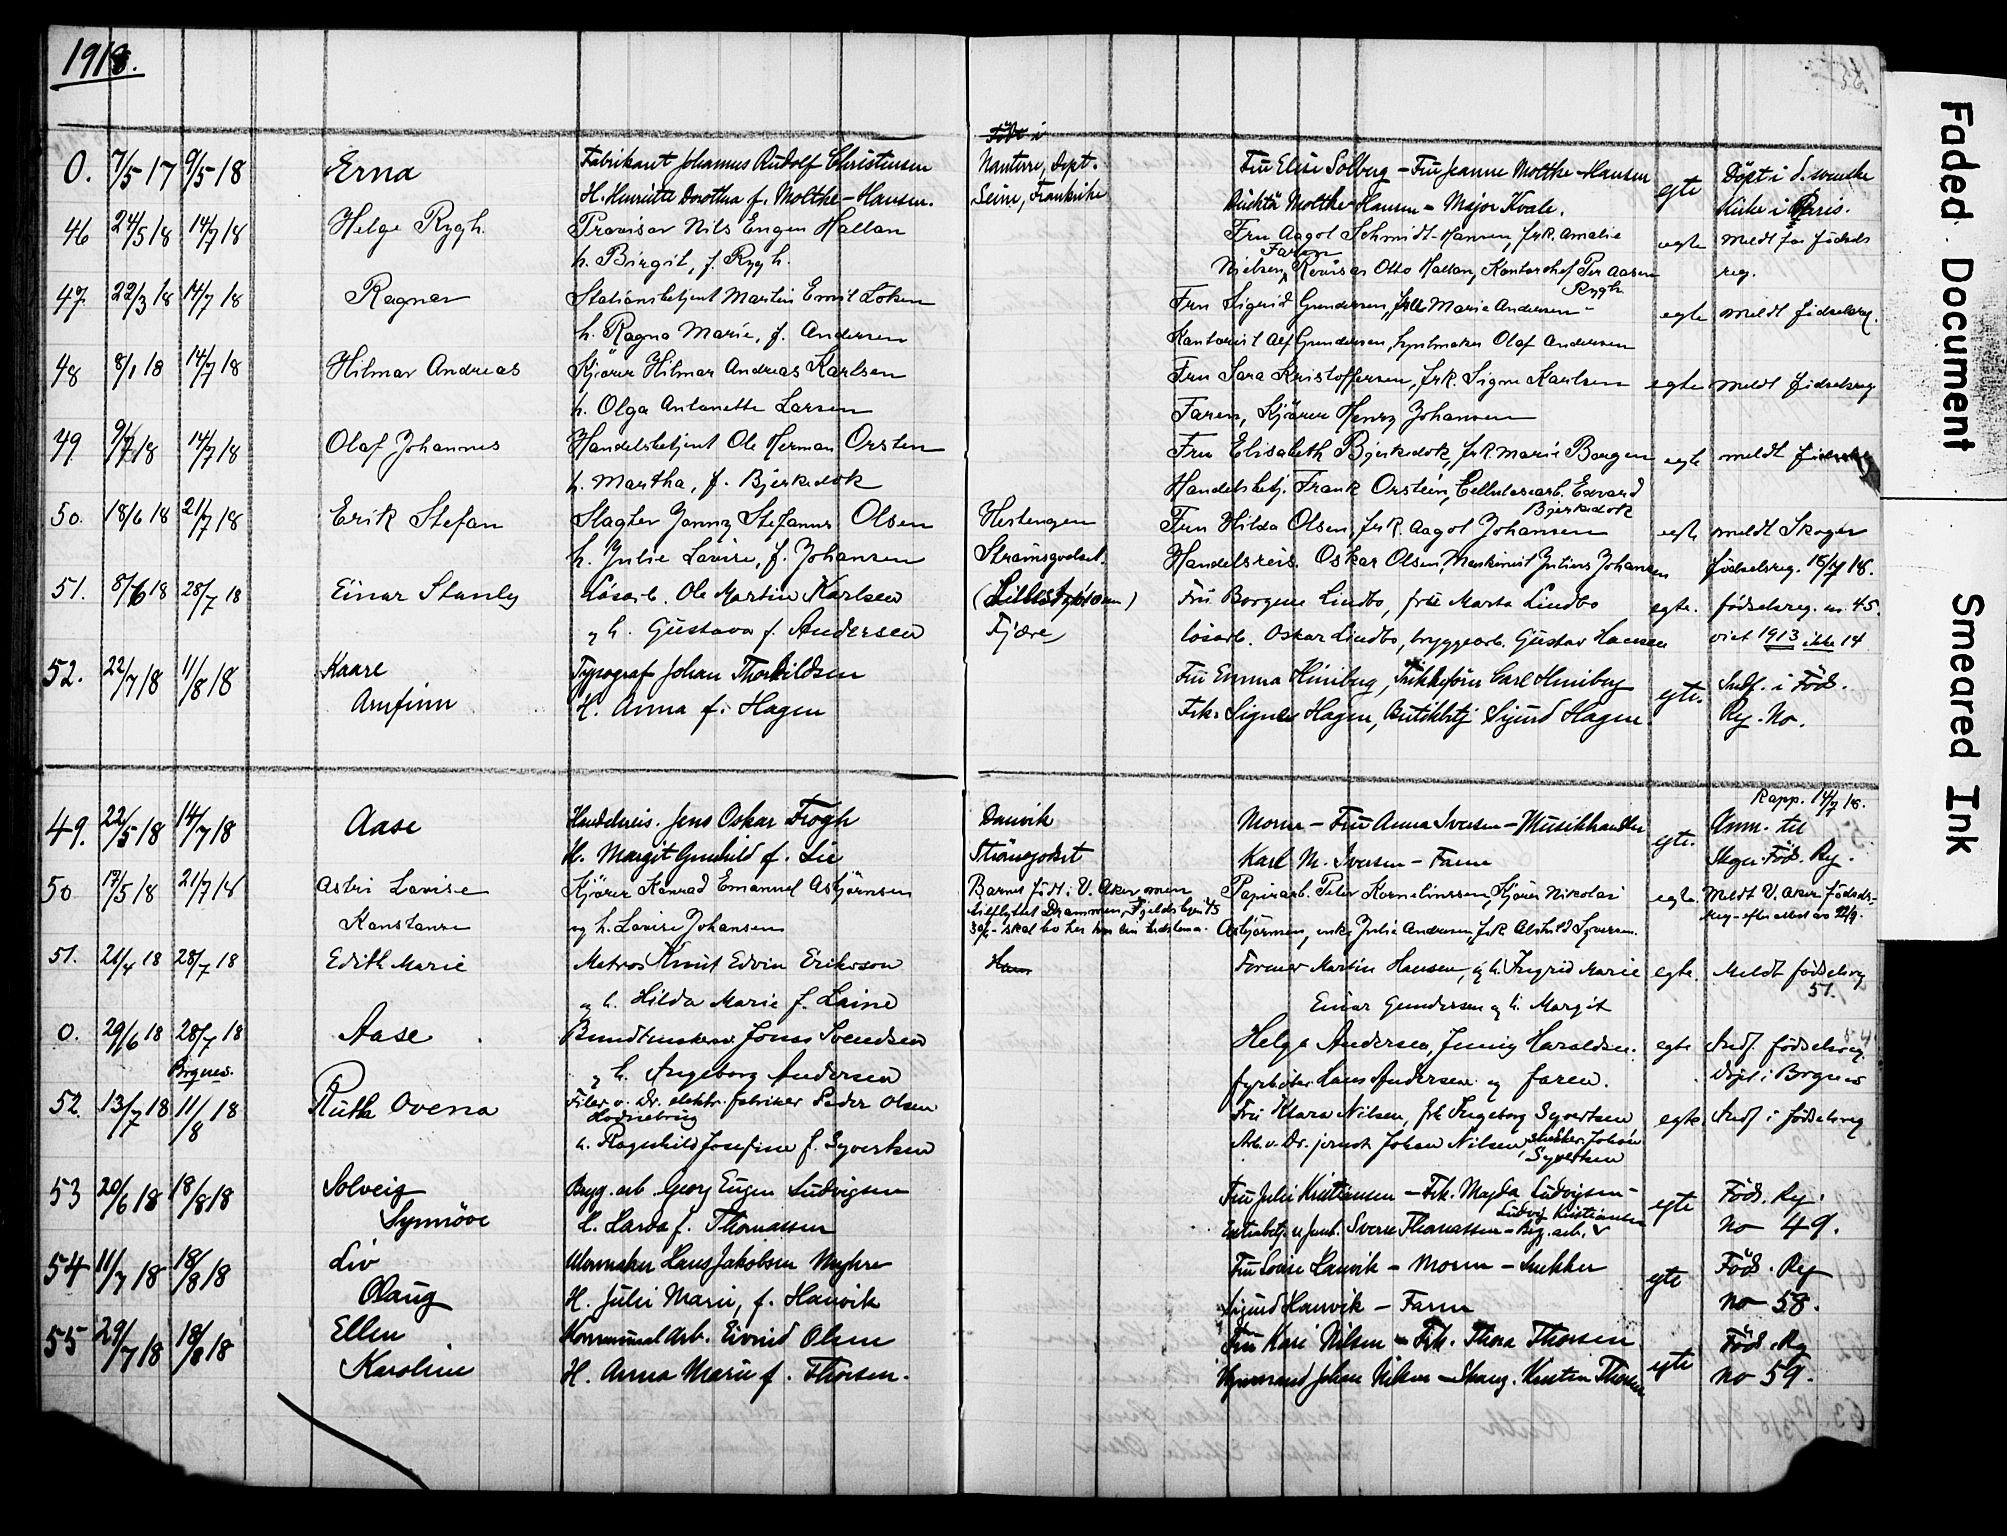 1918.
Född i
0. 7/5 17 9/5 18 Erna Fabrikant Johannes Rudolf Christensen Nanterre, Dept. Fru Elise Solberg – Fru Jeanne Moltke-Hansen egte Döpt i d. svenske
H. Henriette Dorothea f. Moltke-Hansen. Seine, Frankrike Direktör Moltke Hansen – Major Kvale. Kirke i Paris.
46 24/5 18 14/7 18 Helge Rygh. Provisor Nils Eugen Hallan Fru Aagot Schmidt-Hansen, frk. Amalie egte meldt for födsels
h. Birgit, f. Rygh. Nielsen, Faren, Revisor Otto Hallan, Kontorchef Per Aasen reg.
Rygh
47. 22/3 18 14/7 18 Ragnar Stationsbetjent Martin Emil Loken Fru Sigrid Gundersen, frk Marie Andersen – egte meldt födselsreg.
h. Ragna Marie, f. Andersen Kontorist Alf Gundersen, Olaf Andersen
48 8/1 18 14/7 18 Hilmar Andreas Kjörer Hilmar Andreas Karlsen Fru Sara Kristoffersen, frk. Signe Karlsen egte meldt födselsreg
h. Olga Antonette Larsen Faren, Kjörer Henry Johansen
49 9/7 18 14/7 18 Olaf Johannes Handelsbetjent Ole Herman Orsten Fru Elisabeth Bjerkedok, frk Marie Borgen egte meldt
h. Martha, f. Bjerkedok Handelsbetj. Frank Orstein, Cellulosearb. Edvard
Bjerkedok
50. 18/6 18 21/7 18 Erik Stefan Slagter Jonny Stefanus Olsen Hestengen Fru Hilda Olsen, frk. Aagot Johansen egte meldt Skoger
h. Julie Lovise, f. Johansen Strömsgodset. Handelsreis. Oskar Olsen, Maskinist Julius Johansen födselsreg. 18/7 18.
51. 8/6 18 28/7 18 Einar Stanly Lösarb. Ole Martin Karlsen Fru Borgene Lindbo, fru Marta Lindbo egte. födselsreg. nr. 45.
og h. Gustava f. Andersen Fjære lösarb. Oskar Lindbo, bryggearb. Gustav Hansen viet 1913 ikke 14
52. 22/7 18 11/8 18 Kaare Typograf Johan Thorkildsen Fru Emma Hiniberg, Carl Hiniberg egte. Indf. i Föd.
Arnfinn H. Anna f. Hagen Frk. Signe Hagen, Butikbetj. Sigurd Hagen Reg. No.
Rapp. 14/7 18.
49. 22/5 18 14/7 18 Aase Handelsreis. Jens Oskar Frogh Danvik Moren – Fru Anna Iversen – Musikhandler egte. Anm. til
H. Margit Gunhild f. Lie Strömsgodset Karl M. Iversen – Faren Skoger Föd. Reg.
50 17/5 18 21/7 18 Astri Lovise Kjörer Konrad Emanuel Asbjörnsen Barnet född i V. Aker men Papirarb. Peter Korneliussen, Kjörer Nikolai egte Meldt V. Aker födsels-
Konstanse og h. Lovise Johansen tilflyttet Drammen, Asbjörnsen, enke Julie Andersen, frk Alshild Syversen.
51. 21/4 18 28/7 18 Edith Marie Matros Knut Edvin Eriksson Former Martin Hansen, og h. Ingrid Marie egte. Meldt födselsreg
og h. Hilda Marie f. Laine Einar Gundersen og h. Margit 51.
0. 29/6 18 28/7 18 Aase Bundtmaker Jonas Svendsen Helga Andersen, Jenny Haraldsen. egte Indf. födselsreg.
Bragnes. og h. Ingeborg Andersen fyrböter Hans Andersen og faren. Döpt i Bragnes
52 13/7 18 11/8 18 Ruth Ovena Filer v. Dr. elektr. fabriker Peder Olsen Fru Klara Nilsen, frk Ingeborg Syvertsen egte. Indf. i födselsreg
h. Ragnhild Josefine f. Syvertsen Arb. v. Dr. jernst. Johan Nilsen, snekker Johan
Syvertsen
53 20/6 18 18/8 18 Solveig Bryg. arb. Georg Eugen Ludvigsen Fru Julie Kristiansen – Frk. Magda Ludvigsen – egte Föd. Reg.
Synnöve H. Harda f. Thomassen Sverre Thomassen – Bryg. arb. Ludvig Kristiansen No 49.
54 11/7 18 18/8 18 Liv Urmaker Hans Jakobsen Myhre Fru Lovise Hauvik – Moren – Snekker egte Föd. Reg
Olaug H. Julie Marie, f. Hauvik Sigurd Hauvik – Faren No 58.
55 29/7 18 18/8 18 Ellen Kommunal Arb. Eivind Olsen Fru Kari Nilsen – Frk. Thora Thorsen egte Föd. Reg
Karoline H. Anna Marie f. Thorsen. Johan Nilsen – Kristin Thorsen No 59.
Faded Document
Smeared Ink